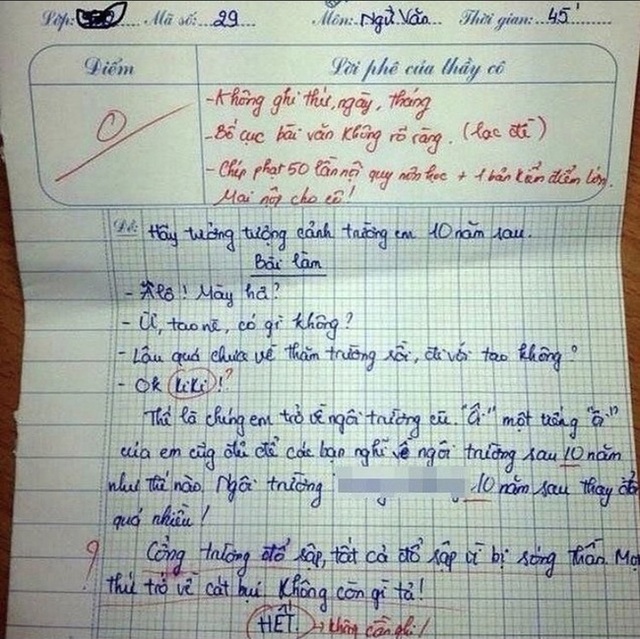 Lớp: Mã số: 29 Môn: Ngữ Văn Thời gian: 45'
Điểm Lời phê của thầy cô
0
- Không ghi thứ, ngày, tháng
- Bố cục bài văn không rõ ràng. (lạc đề)
- Chép phạt 50 lần nội quy môn học + 1 bản kiểm điểm lớn.
Mai nộp cho cô!
Đề: Hãy tưởng tượng cảnh trường em 10 năm sau.
Bài làm
- Alô! Mày hả?
- Ừ, tao nè, có gì không?
- Lâu quá chưa về thăm trường rồi, đi với tao không?
- Ok kiki! ?
Thế là chúng em trở về ngôi trường cũ. "Ồ" một tiếng "ồ"
của em cũng đủ để các bạn nghĩ về ngôi trường sau 10 năm
như thế nào. Ngôi trường 10 năm sau thay đổi
quá nhiều!
? Cổng trường đổ sập, tất cả đổ sập vì bị sóng thần. Mọi
thứ trở về cát bụi. Không còn gì tả!
HẾT. → không cần ghi!